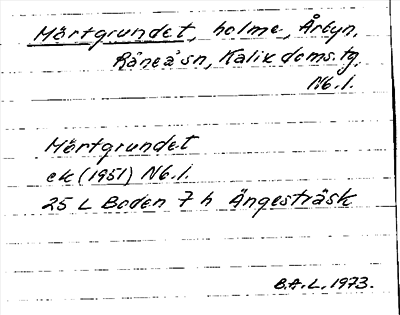 Mörtgrundet, holme, Årbyn,
Råneå sn, Kalix doms.tg.
Nb.l.
Mörtgrundet
ek (1951) Nb.l.
25 L Boden 7 h Ängesträsk
B.A.L. 1973.